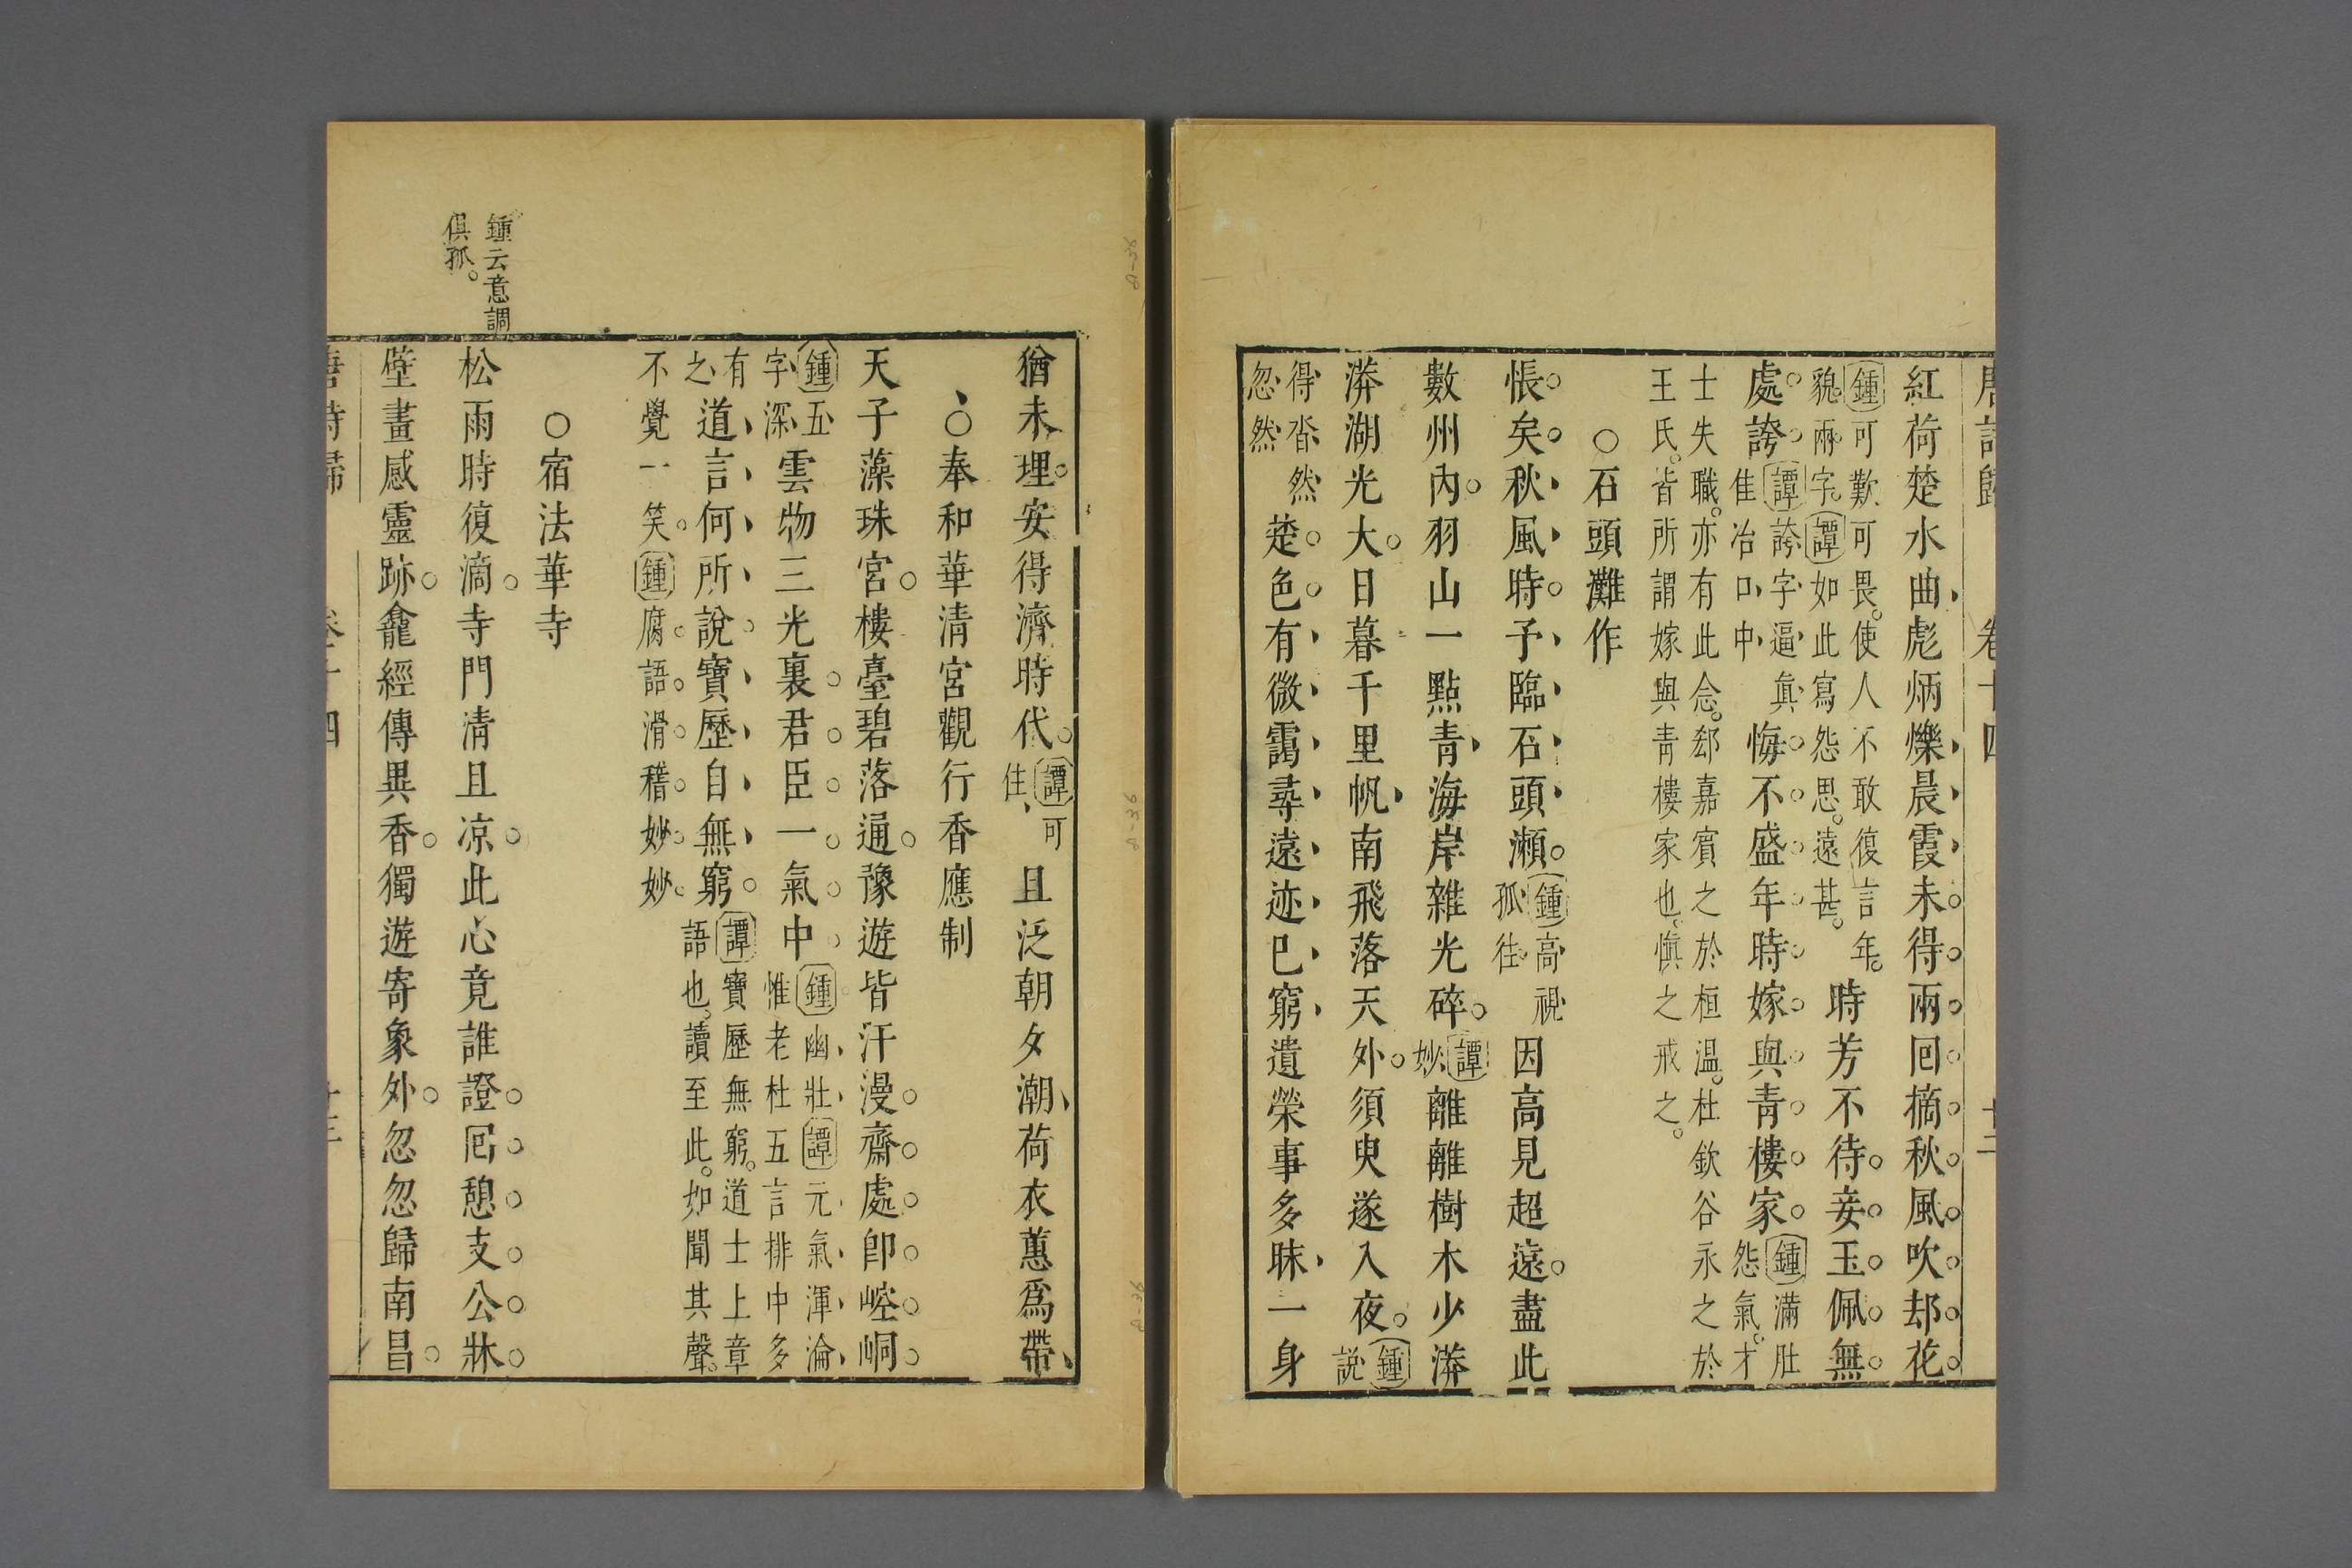 唐詩歸 卷十四 十二
紅荷楚水曲彪炳爍晨霞未得兩囘摘秋風吹却花
鍾可歎可畏使人不敢復言年
貌兩字譚如此寫怨思遠甚
時芳不待妾玉佩無
處誇
譚誇字逼真
佳冶口中
悔不盛年時嫁與青樓家
鍾滿肚
怨氣才
士失職亦有此念郄嘉賓之於桓温杜欽谷永之於
王氏皆所謂嫁與青樓家也慎之戒之
○石頭灘作
悵矣秋風時予臨石頭瀨
鍾高視
孤往
因高見超遠盡此
數州內羽山一點青海岸雜光碎
譚
妙
離離樹木少漭
漭湖光大日暮千里帆南飛落天外須臾遂入夜
鍾
説
得杳然
忽然
楚色有微靄尋遠迹已窮遺榮事多昧一身
猶未理安得濟時代
譚可
住
且泛朝夕潮荷衣蕙爲帶
○奉和華清宮觀行香應制
天子藻珠宮樓臺碧落通豫遊皆汗漫齋處卽崆峒
鍾五
字深
雲物三光裏君臣一氣中
鍾幽壯譚元氣渾淪
惟老杜五言排中多
有
之
道言何所說寶歷自無窮
譚寶歷無窮道士上章
語也讀至此如聞其聲
不覺一笑鍾腐語滑稽妙妙
○宿法華寺
松雨時復滴寺門清且凉此心竟誰證囘憩支公牀
鍾云意調
俱孤
壁畫感靈跡龕經傳異香獨遊寄象外忽忽歸南昌
唐詩歸 卷十四 十三